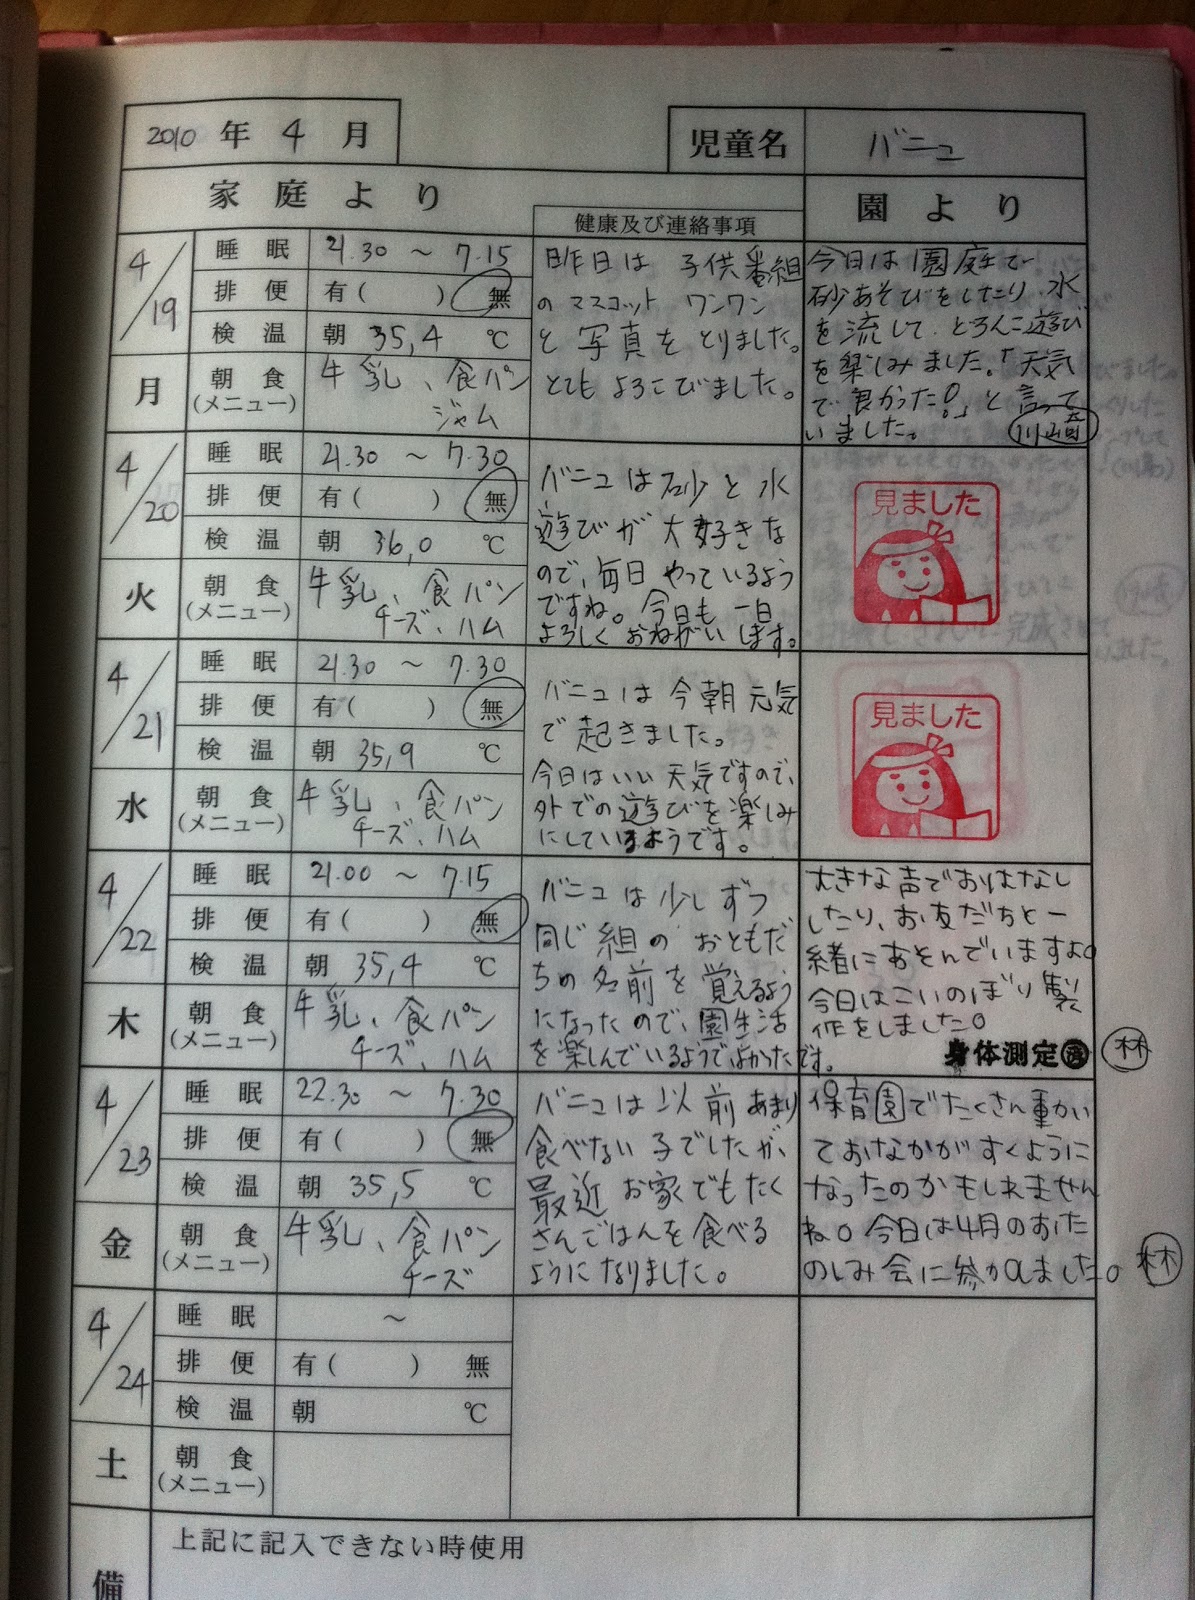 2010 年 4 月
児童名 バニュ
家庭より
健康及び連絡事項
園より
4/19 月
睡眠 21.30 ～ 7.15
排便 有( ) 無
検温 朝 35,4 ℃
朝食 (メニュー) 牛乳、食パン
ジャム
昨日は 子供番組
のマスコット ワンワン
と 写真を とりました。
とても よろこびました。
今日は園庭で
砂あそびをしたり、水
を流して どろんこ遊び
を楽しみました。「天気
で良かった!。」と言って
いました。
川崎
4/20 火
睡眠 21.30 ～ 7.30
排便 有( ) 無
検温 朝 36,0 ℃
朝食 (メニュー) 牛乳、食パン
チーズ、ハム
バニュは砂と水
遊びが大好きな
ので、毎日 やっているよう
ですね。今日も 一日
よろしく おねがい します。
見ました
4/21 水
睡眠 21.30 ～ 7.30
排便 有( ) 無
検温 朝 35,9 ℃
朝食 (メニュー) 牛乳、食パン
チーズ、ハム
バニュは今朝元気
で起きました。
今日はいい天気ですので、
外での遊びを楽しみ
にしているようです。
見ました
4/22 木
睡眠 21.00 ～ 7.15
排便 有( ) 無
検温 朝 35,4 ℃
朝食 (メニュー) 牛乳、食パン
チーズ、ハム
バニュは少しずつ
同じ組の おともだ
ちの名前を覚えるよう
になったので、園生活
を楽しんでいるようでよかったです。
大きな声でおはなし
したり、お友だちと一
緒にあそんでいますよ。
今日はこいのぼり製
作をしました。
身体測定済
林
4/23 金
睡眠 22.30 ～ 7.30
排便 有( ) 無
検温 朝 35,5 ℃
朝食 (メニュー) 牛乳、食パン
チーズ
バニュは以前あまり
食べない子でしたが、
最近 お家でもたく
さんごはんを食べる
ようになりました。
保育園でたくさん動かい
ておなかがすくように
なったのかもしれません
ね。今日は4月のおた
のしみ会に参加しました。
林
4/24 土
睡眠 ～
排便 有( ) 無
検温 朝 ℃
朝食 (メニュー)
備
上記に記入できない時使用